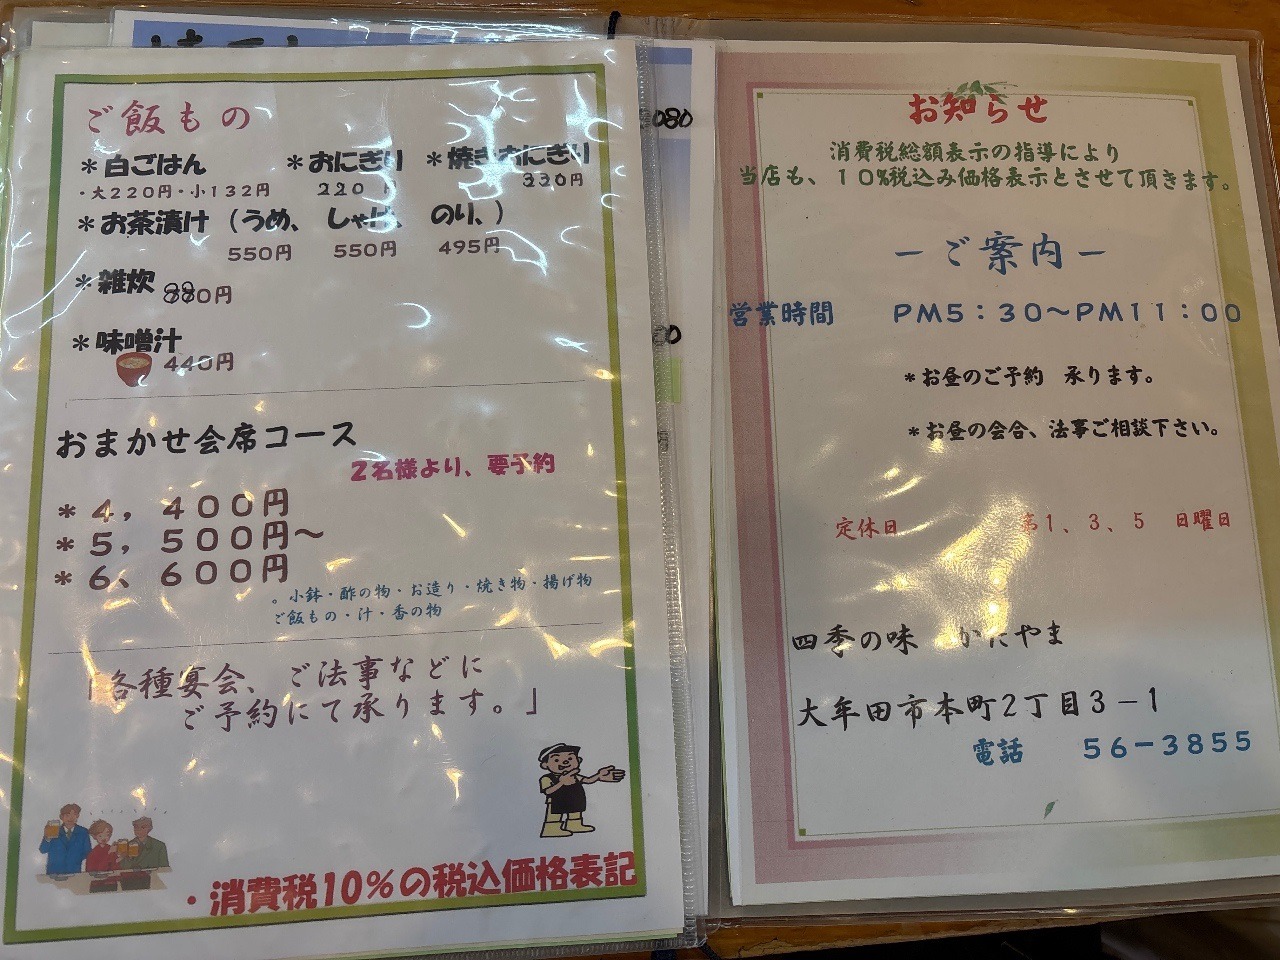 ご飯もの
＊白ごはん ＊おにぎり ＊焼きおにぎり
・大220円・小132円 220円 220円
＊お茶漬け（うめ、しゃけ、のり、）
550円 550円 495円
＊雑炊 880円
＊味噌汁
440円
おまかせ会席コース
2名様より、要予約
＊4，400円
＊5，500円～
＊6、600円
。小鉢・酢の物・お造り・焼き物・揚げ物
ご飯もの・汁・香の物
「各種宴会、ご法事などに
ご予約にて承ります。」
・消費税10％の税込価格表記
080
お知らせ
消費税総額表示の指導により
当店も、10％税込み価格表示とさせて頂きます。
－ご案内－
営業時間 PM5：30～PM11：00
＊お昼のご予約 承ります。
＊お昼の会合、法事ご相談下さい。
定休日 第1、3、5 日曜日
四季の味 かたやま
大牟田市本町2丁目3－1
電話 56－3855